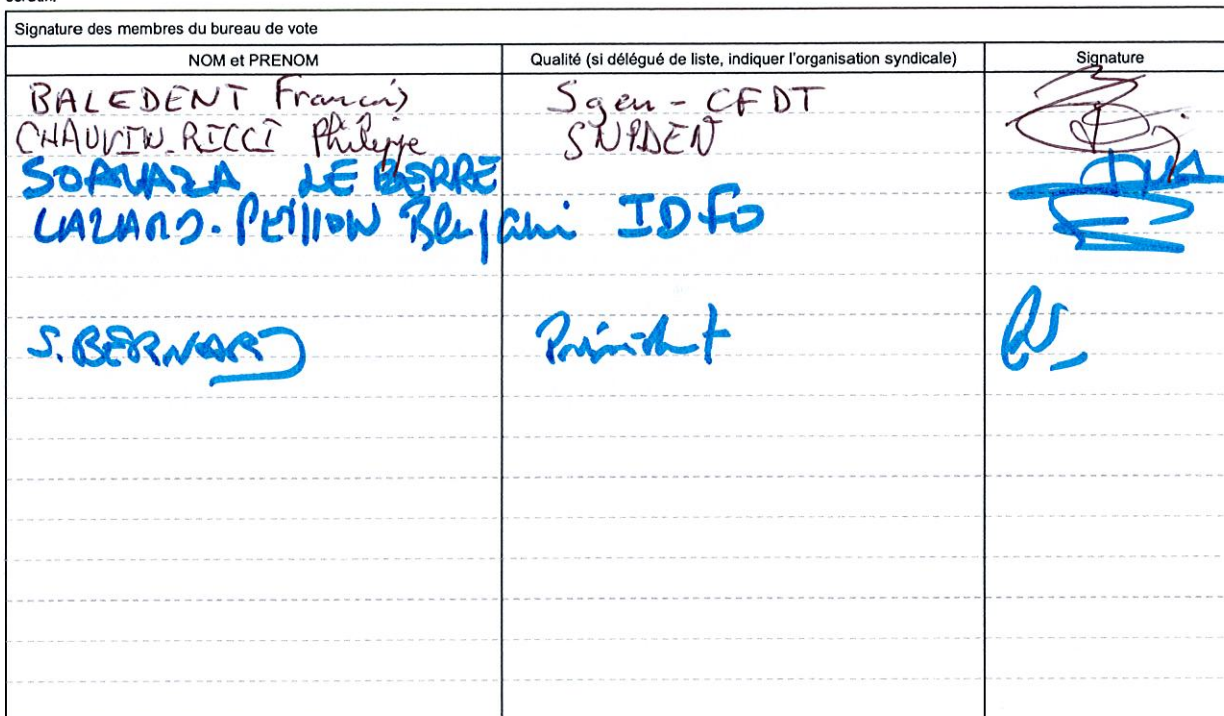 Signature des membres du bureau de vote
NOM et PRENOM Qualité (si délégué de liste, indiquer l'organisation syndicale) Signature
BALEDENT Francis Sgen - CFDT
CHAUVIN.RICCI Philippe SNPDEN
LE BERRE
LAZARD. PETILLON Benjamin IDFO
S. BERNARD Président